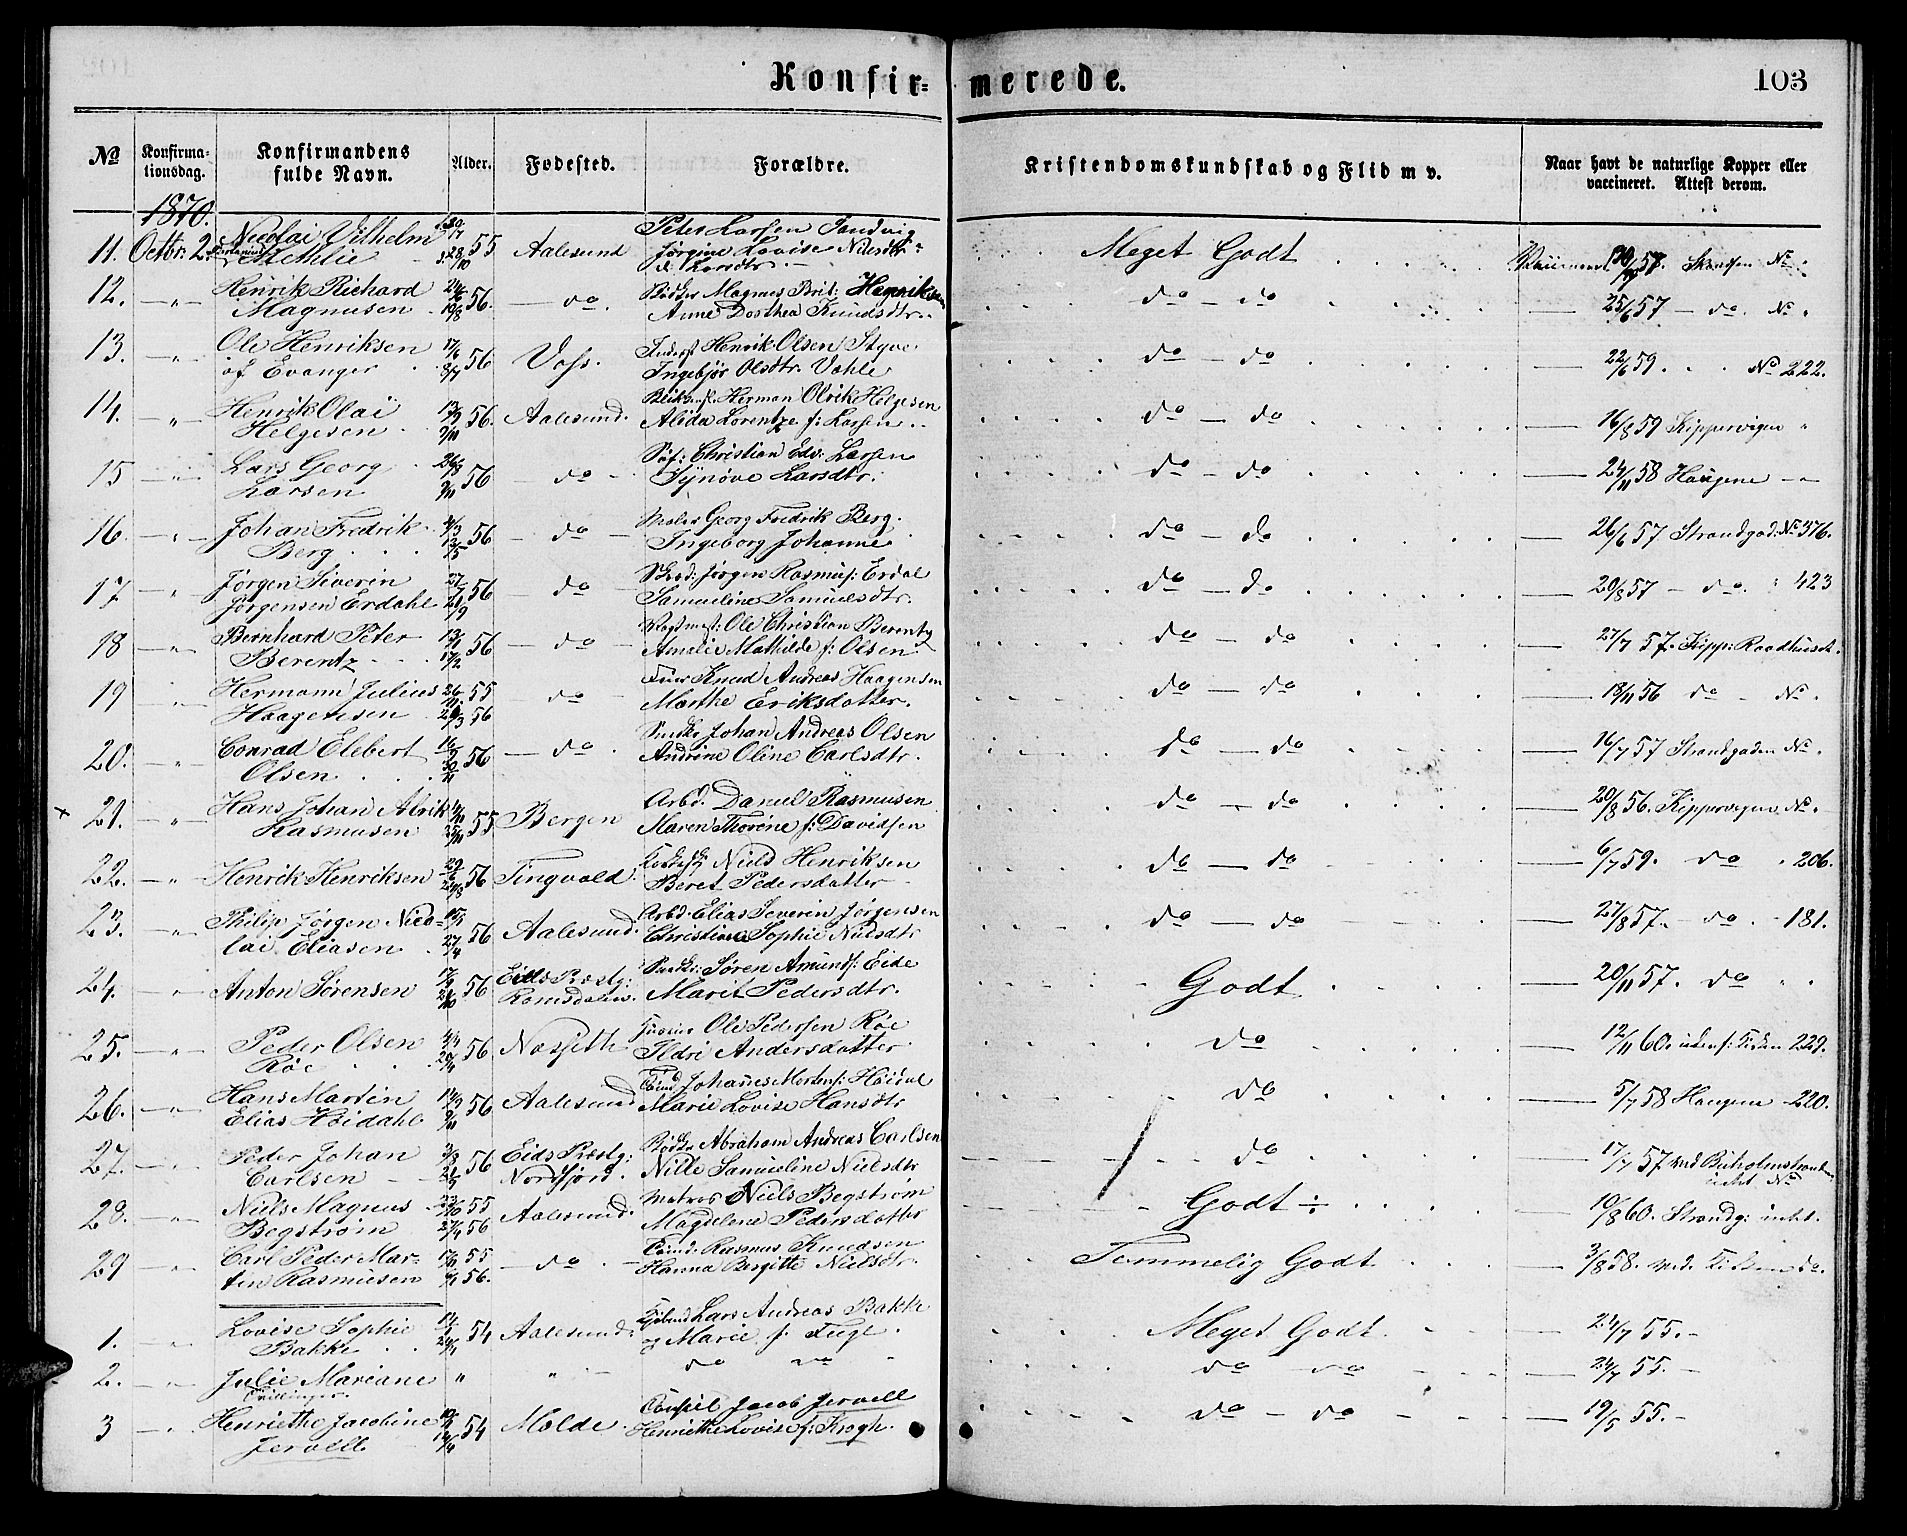 Konfir=merede.
103
No
Konfirma-
tionsdag.
Konfirmandens
fulde Navn.
Alder.
Fødested.
Forældre.
Kristendomskundskab og Flid m v.
Naar havt de naturlige Kopper eller
vaccineret. Attest derom.
1870.
11. Octbr: 2. Nicolai Vilhelm 55 Aalesund Peter Larsen Sandvig Meget Godt 57. No
Jørgine Lovise Nilsdtr
12. — " Henrik Richard 56. — do. Magnus Brit: Henriksen do — do 25/6 57 — do. No "
Magnusen 19/8 Anne Dorthea Knudsdtr.
13. — " Ole Henriksen 17/6 56 Voss. Henrik Olsen Styve do — do — 22/6 59 . . . No 222.
af Evanger 8/7 Ingebjør Olsdtr. Vahle
14. — " Henrik Olai 56. Aalesund. Herman Olrik Helgesen do — do — 16/8 59 Kippervigen "
Helgesen 9/11 Alida Lorentze f: Larsen
15 — " Lars Georg 26/8 56 — do — Christian Edv: Larsen do — do — 24/11 58 Haugene — "
Larsen 9/11 Synøve Larsdtr.
16. — " Johan Fredrik 56 — do — Maler Georg Fredrik Berg. do — do — 26/6 57 Strandgad: No 376.
Berg . . . Ingeborg Johanne
17 — " Jørgen Siverin 56 — do — Jørgen Rasmus: Erdal do — do — 20/8 57 — do. " 423
Jørgensen Erdahl 21/9 Samueline Samuelsdtr.
18 — " Bernhard Peter 56 — do — Ole Christian Berentz do — do — 27/7 57. Kipp: Raadhuset.
Berentz . . . 17/2 Amalie Mathilde f: Olsen
19 " Hermann Julius 55 — do — Knud Andreas Haagensen do — do — 18/11 56 do — No.
Haagensen 56 Marthe Eriksdatter.
20. — " Conrad Elebert 56 — do . Johan Andreas Olsen do — do — 16/7 57 Strandgaden No.
Olsen . . . Andrine Oline Carlsdtr.
x 21. — " Hans Johan Alrik 55 Bergen Arbd. Daniel Rasmusen do — do — 20/8 56. Kippervigen No.
Rasmusen Maren Thorine f: Davidsen
22. — " Henrik Henriksen 56 Tingvold. Niels Henriksen do — do — 6/7 59. do . 206.
Beret Pedersdatter
23. — " Philip Jørgen Nico- 56 Aalesund. Arbd: Elias Severin Jørgensen do — do — 27/8 57. — do . - 181.
lai Eliasen . 27/4 Christiane Sophie Nilsdtr
24. " Anton Sørensen 56 Eids Præstg: Søren Amunds: Eide Godt — 20/11 57. do " .
Romsdalen. Marit Pedersdtr.
25. — " Peder Olsen 56. Nesseth Ole Pedersen Røe do — 12/11 60. 229.
Røe . . . Ildri Andersdatter
26. — " Hans Martin 56 Aalesund Johanes Mortens: Høidal do — 5/7 58 Haugene - 220.
Elias Høidahl 9/11 Marie Lovise Hansdtr
27. — " Peder Johan 56 Eids Præstg: Abraham Andreas Carlsen do — 17/7 57 ved Buholmstrand
Carlsen — Nordfjord. Nille Samueline Nielsdtr No
28. — " Niels Magnus 55 Aalesund. Matros Niels Begstrøm Godt ÷ — 10/8 60. Strandg:
Begstrøm 27/4 56 Magdelene Pedersdatter
29 " Carl Peder Mar- 55 — do . — Rasmus Knudsen Temmelig Godt — 3/8 58. ved do.
tin Rasmusen 56. Hanna Birgitte Nielsdtr.
1. — " Lovise Sophie 54 Aalesund. Lars Andreas Bakke Meget Godt — 24/7 55. -
Bakke . . og Marie f:
2. — " Julie Mariane " " - do do do — do — 24/7 55. -
Tvillinger.
3 — " Henriethe Jacobine 54 Molde . Consul Jacob Jervell do — do — 19/5 55. -
Jervell Henriethe Lovise f: Krogh.